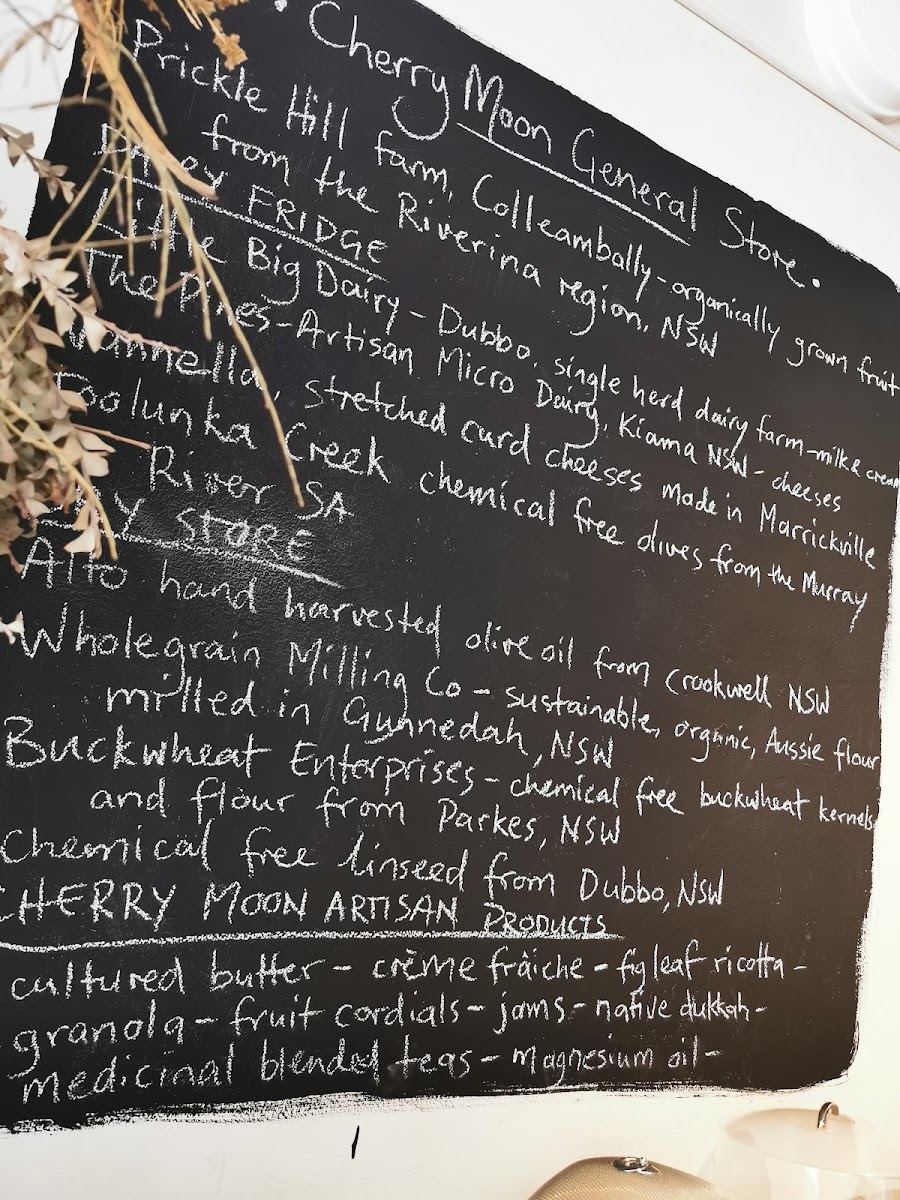 Cherry Moon General Store.
Prickle Hill farm, Colleambally - organically grown fruit
from the Riverina region, NSW
FRIDGE
Little Big Dairy - Dubbo, single herd dairy farm - milk & cream
The Pines - Artisan Micro Dairy, Kiama NSW - cheeses
Vannella, stretched curd cheeses made in Marrickville
Boolunka Creek chemical free olives from the Murray
River SA
STORE
Alto hand harvested olive oil from Crookwell NSW
Wholegrain Milling Co - sustainable, organic, Aussie flour
milled in Gunnedah, NSW
Buckwheat Enterprises - chemical free buckwheat kernels
and flour from Parkes, NSW
Chemical free linseed from Dubbo, NSW
CHERRY MOON ARTISAN PRODUCTS
cultured butter - crème fraîche - fig leaf ricotta -
granola - fruit cordials - jams - native dukkah -
medicinal blended teas - magnesium oil -